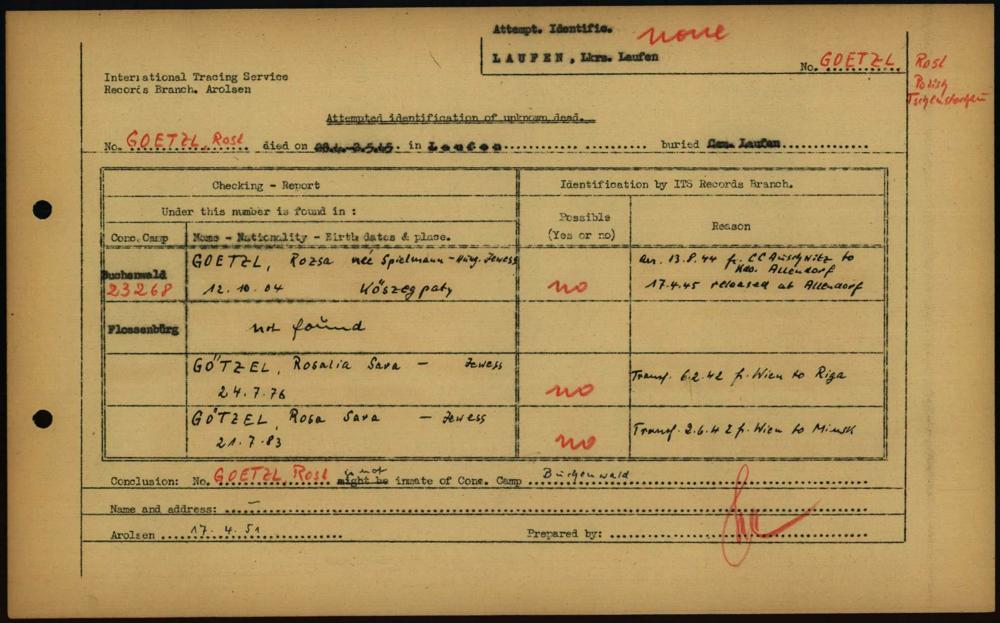 Attempt. Identific. none
LAUFEN, Lkrs. Laufen
No. GOETZL Rosl
International Tracing Service
Records Branch. Arolsen
Attempted identification of unknown dead.
No. GOETZL, Rosl died on 28.4.-2.5.45. in Laufen buried Cem. Laufen
Checking - Report
Identification by ITS Records Branch.
Under this number is found in :
Possible
(Yes or no)
Reason
Conc. Camp
Name - Nationality - Birth dates & place.
Buchenwald
23268
GOETZL, Rozsa nee Spielmann - Hung. Jewess
12.10.04 Köszegpaty
no
arr. 13.8.44 f. CC Auschwitz to
Kdo. Allendorf
17.4.45 released at Allendorf
Flossenbürg
not found
GÖTZEL, Rosalia Sara - Jewess
24.7.76
no
Transf. 6.2.42 f. Wien to Riga
GÖTZEL, Rosa Sara - Jewess
21.7.83
no
Transf. 2.6.42 f. Wien to Minsk
Conclusion: No. GOETZL, Rosl is not might be inmate of Conc. Camp Buchenwald
Name and address: —
Arolsen 17.4.51
Prepared by: